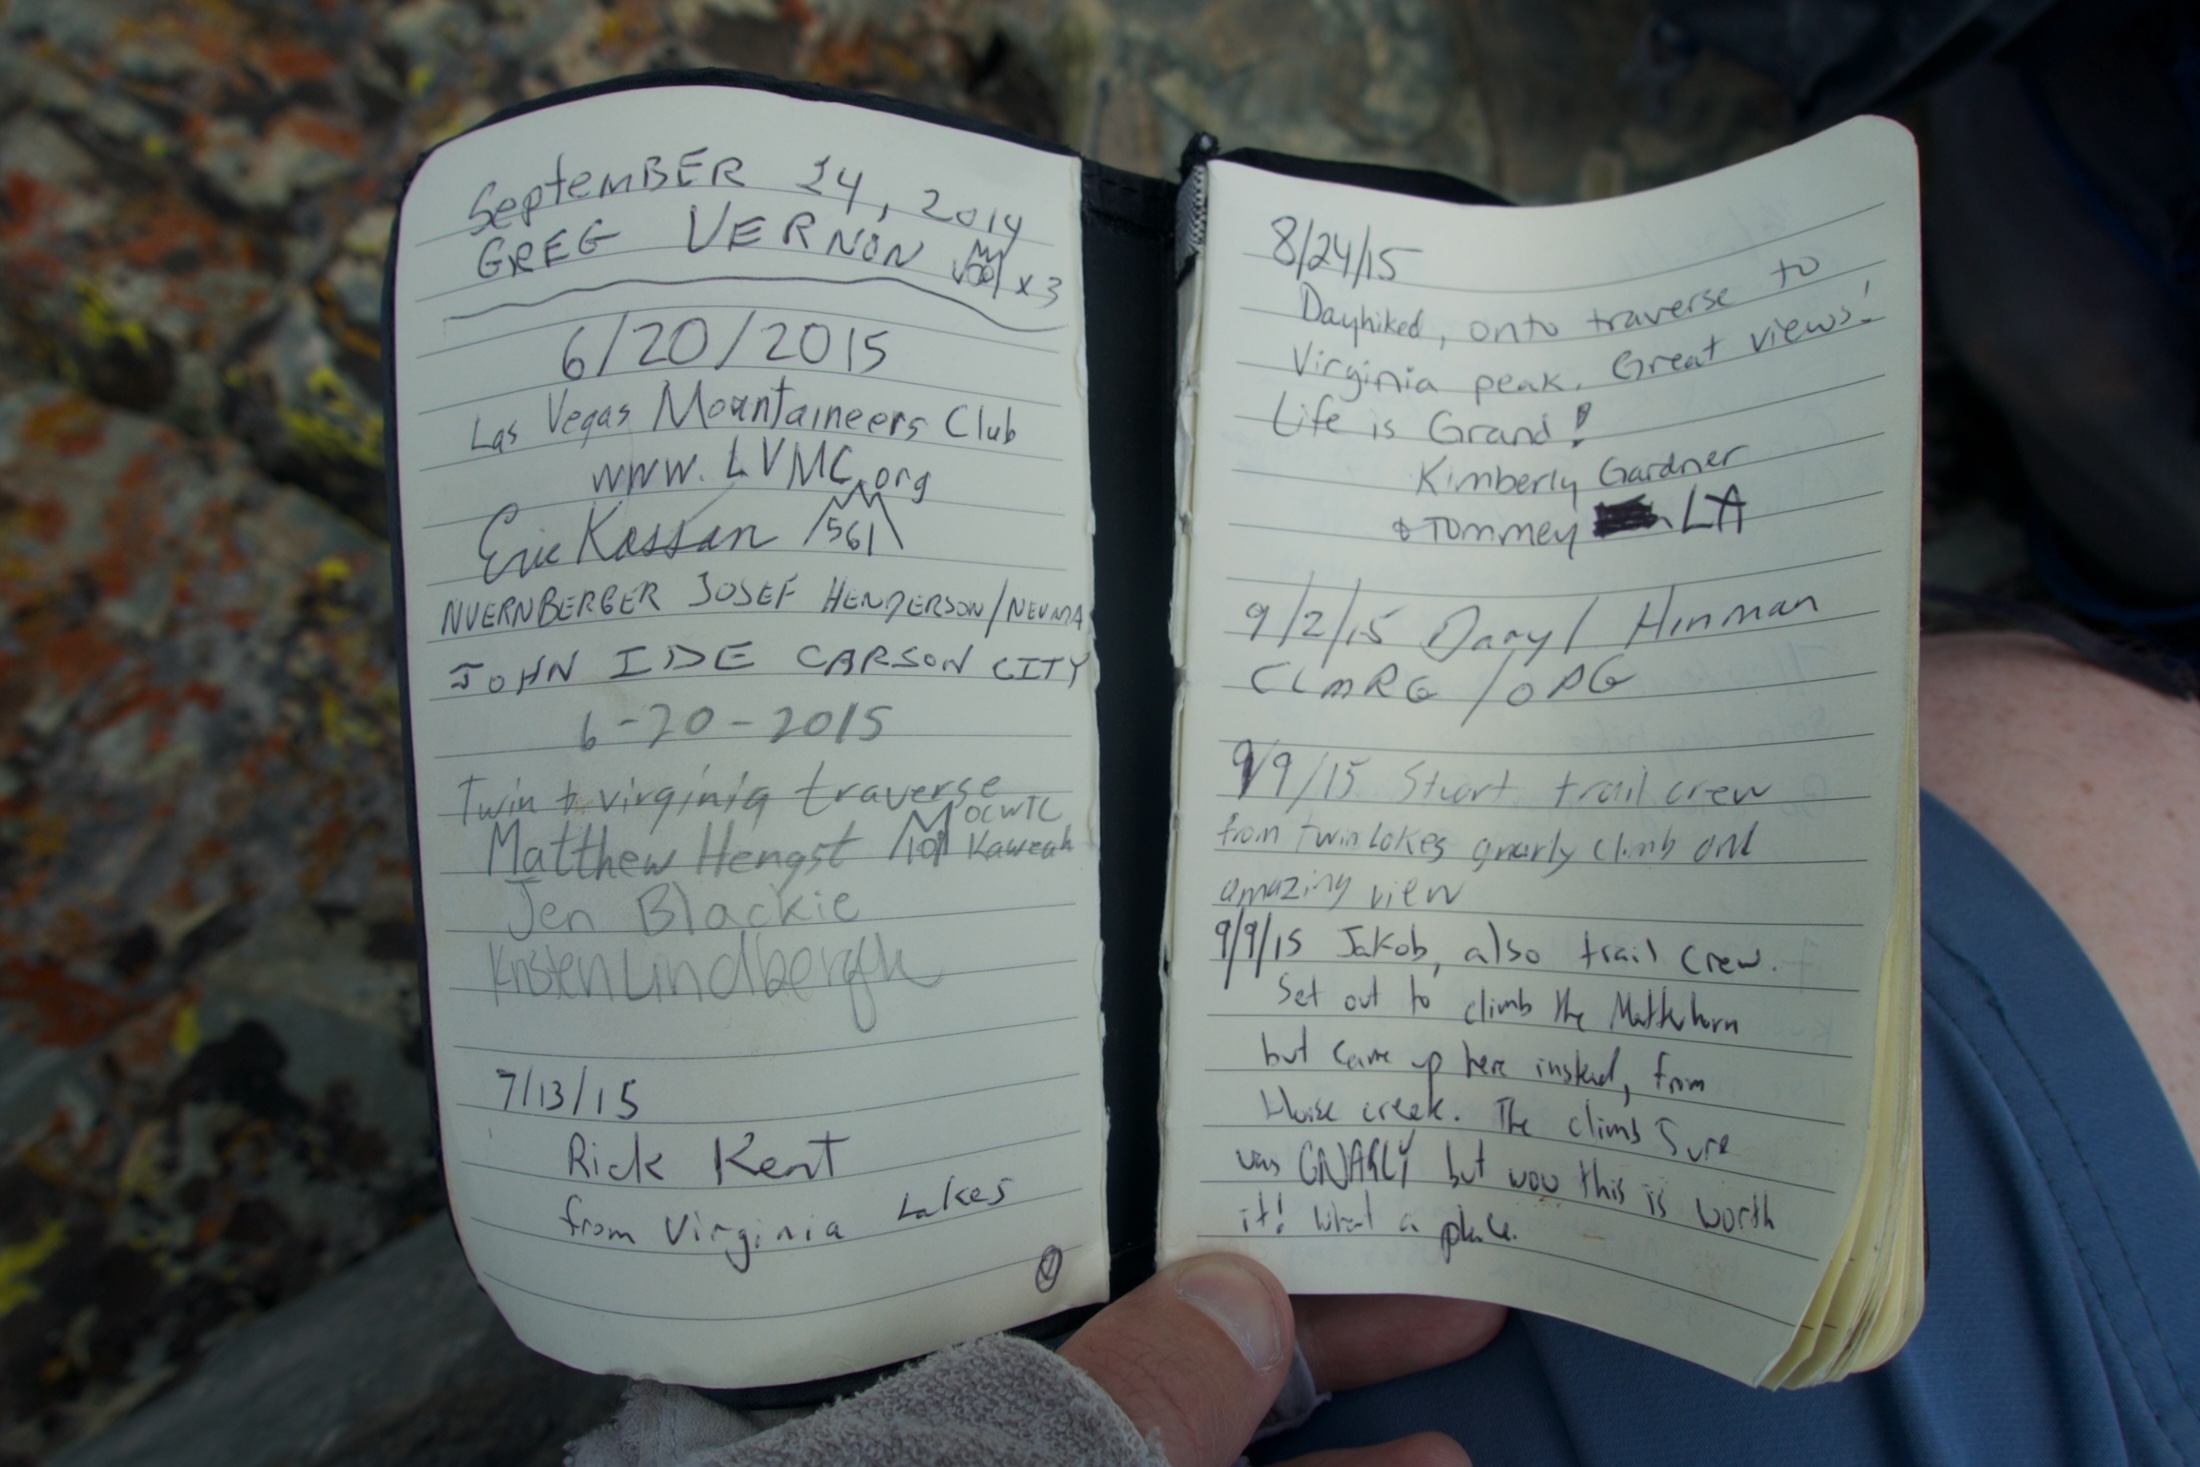 September 24, 2014
GREG VERNON x3
6/20/2015
Las Vegas Mountaineers Club
www.LVMC.org
Eric Kassan 561
NUERNBERGER JOSEF HENDERSON/NEVADA
JOHN IDE CARSON CITY
6-20-2015
Twin to virginia traverse
Matthew Hengst 101 OCWTC
Kaweah
Jen Blackie
Kirsten Lindbergh
7/13/15
Rick Kent
from Virginia Lakes
8/24/15
Dayhiked, onto traverse to
Virginia peak. Great views!
Life is Grand!
Kimberly Gardner
& Tommey LA
9/2/15 Daryl Hinman
CLMRG /OPG
9/9/15 Stuart trail crew
from twin lakes gnarly climb and
amazing view
9/9/15 Jakob, also trail crew.
Set out to climb the Matterhorn
but came up here instead, from
creek. The climb sure
was GNARLY but wow this is worth
it! What a place.